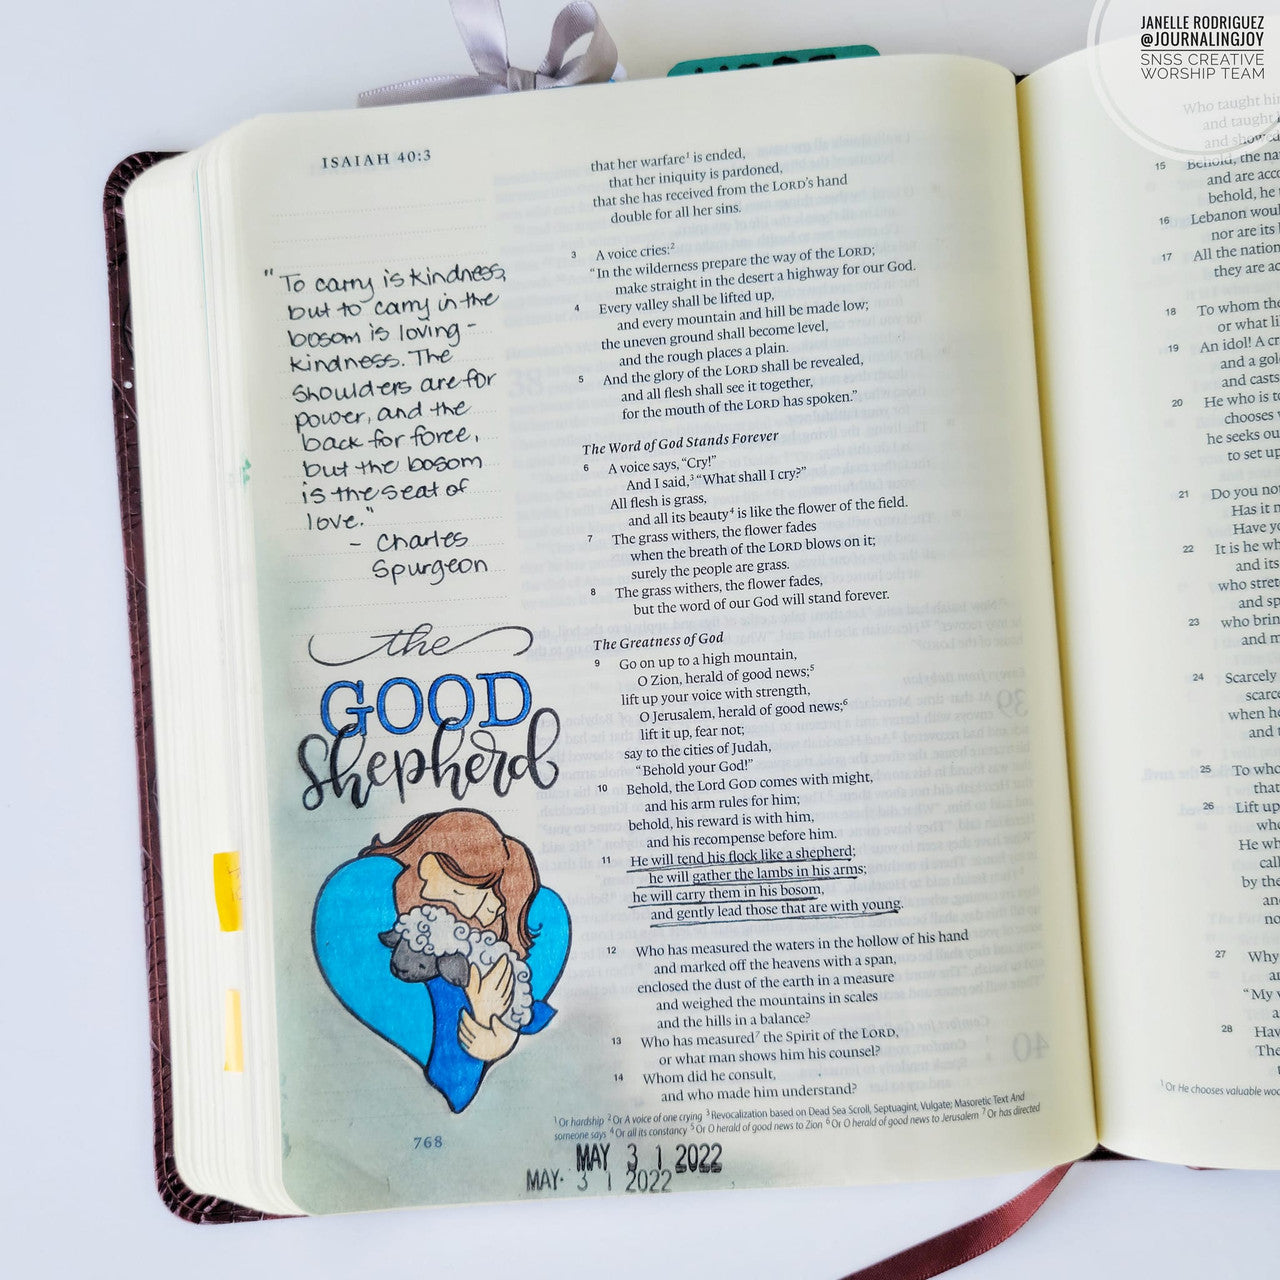 JANELLE RODRIGUEZ
@JOURNALINGJOY
SNSS CREATIVE
WORSHIP TEAM
ISAIAH 40:3
"To carry is kindness,
but to carry in the
bosom is loving-
kindness. The
shoulders are for
power, and the
back for force,
but the bosom
is the seat of
love."
- Charles
Spurgeon
the
GOOD
Shepherd
768
that her warfare¹ is ended,
that her iniquity is pardoned,
that she has received from the LORD's hand
double for all her sins.
3 A voice cries:²
"In the wilderness prepare the way of the LORD;
make straight in the desert a highway for our God.
4 Every valley shall be lifted up,
and every mountain and hill be made low;
the uneven ground shall become level,
and the rough places a plain.
5 And the glory of the LORD shall be revealed,
and all flesh shall see it together,
for the mouth of the LORD has spoken."
The Word of God Stands Forever
6 A voice says, "Cry!"
And I said,³ "What shall I cry?"
All flesh is grass,
and all its beauty⁴ is like the flower of the field.
7 The grass withers, the flower fades
when the breath of the LORD blows on it;
surely the people are grass.
8 The grass withers, the flower fades,
but the word of our God will stand forever.
The Greatness of God
9 Go on up to a high mountain,
O Zion, herald of good news;⁵
lift up your voice with strength,
O Jerusalem, herald of good news;⁶
lift it up, fear not;
say to the cities of Judah,
"Behold your God!"
10 Behold, the Lord GOD comes with might,
and his arm rules for him;
behold, his reward is with him,
and his recompense before him.
11 He will tend his flock like a shepherd;
he will gather the lambs in his arms;
he will carry them in his bosom,
and gently lead those that are with young.
12 Who has measured the waters in the hollow of his hand
and marked off the heavens with a span,
enclosed the dust of the earth in a measure
and weighed the mountains in scales
and the hills in a balance?
13 Who has measured⁷ the Spirit of the LORD,
or what man shows him his counsel?
14 Whom did he consult,
and who made him understand?
¹ Or hardship ² Or A voice of one crying ³ Revocalization based on Dead Sea Scroll, Septuagint, Vulgate; Masoretic Text And
someone says ⁴ Or all its constancy ⁵ Or O herald of good news to Zion ⁶ Or O herald of good news to Jerusalem ⁷ Or has directed
MAY 3 1 2022
MAY 3 1 2022
Who taught hi
and taught
and showed
15 Behold, the na
and are acc
behold, he
16 Lebanon woul
nor are its
17 All the nation
they are ac
18 To whom the
or what li
19 An idol! A cr
and a gol
and casts
20 He who is to
chooses
he seeks ou
to set up
21 Do you no
Has it n
Have y
22 It is he wh
and its
who stret
and sp
23 who brin
and m
24 Scarcely
scarce
when he
and t
25 To who
that
26 Lift up
who
He wh
call
by the
an
no
27 Why
ar
"My v
a
28 Hav
The
¹ Or He chooses valuable woo